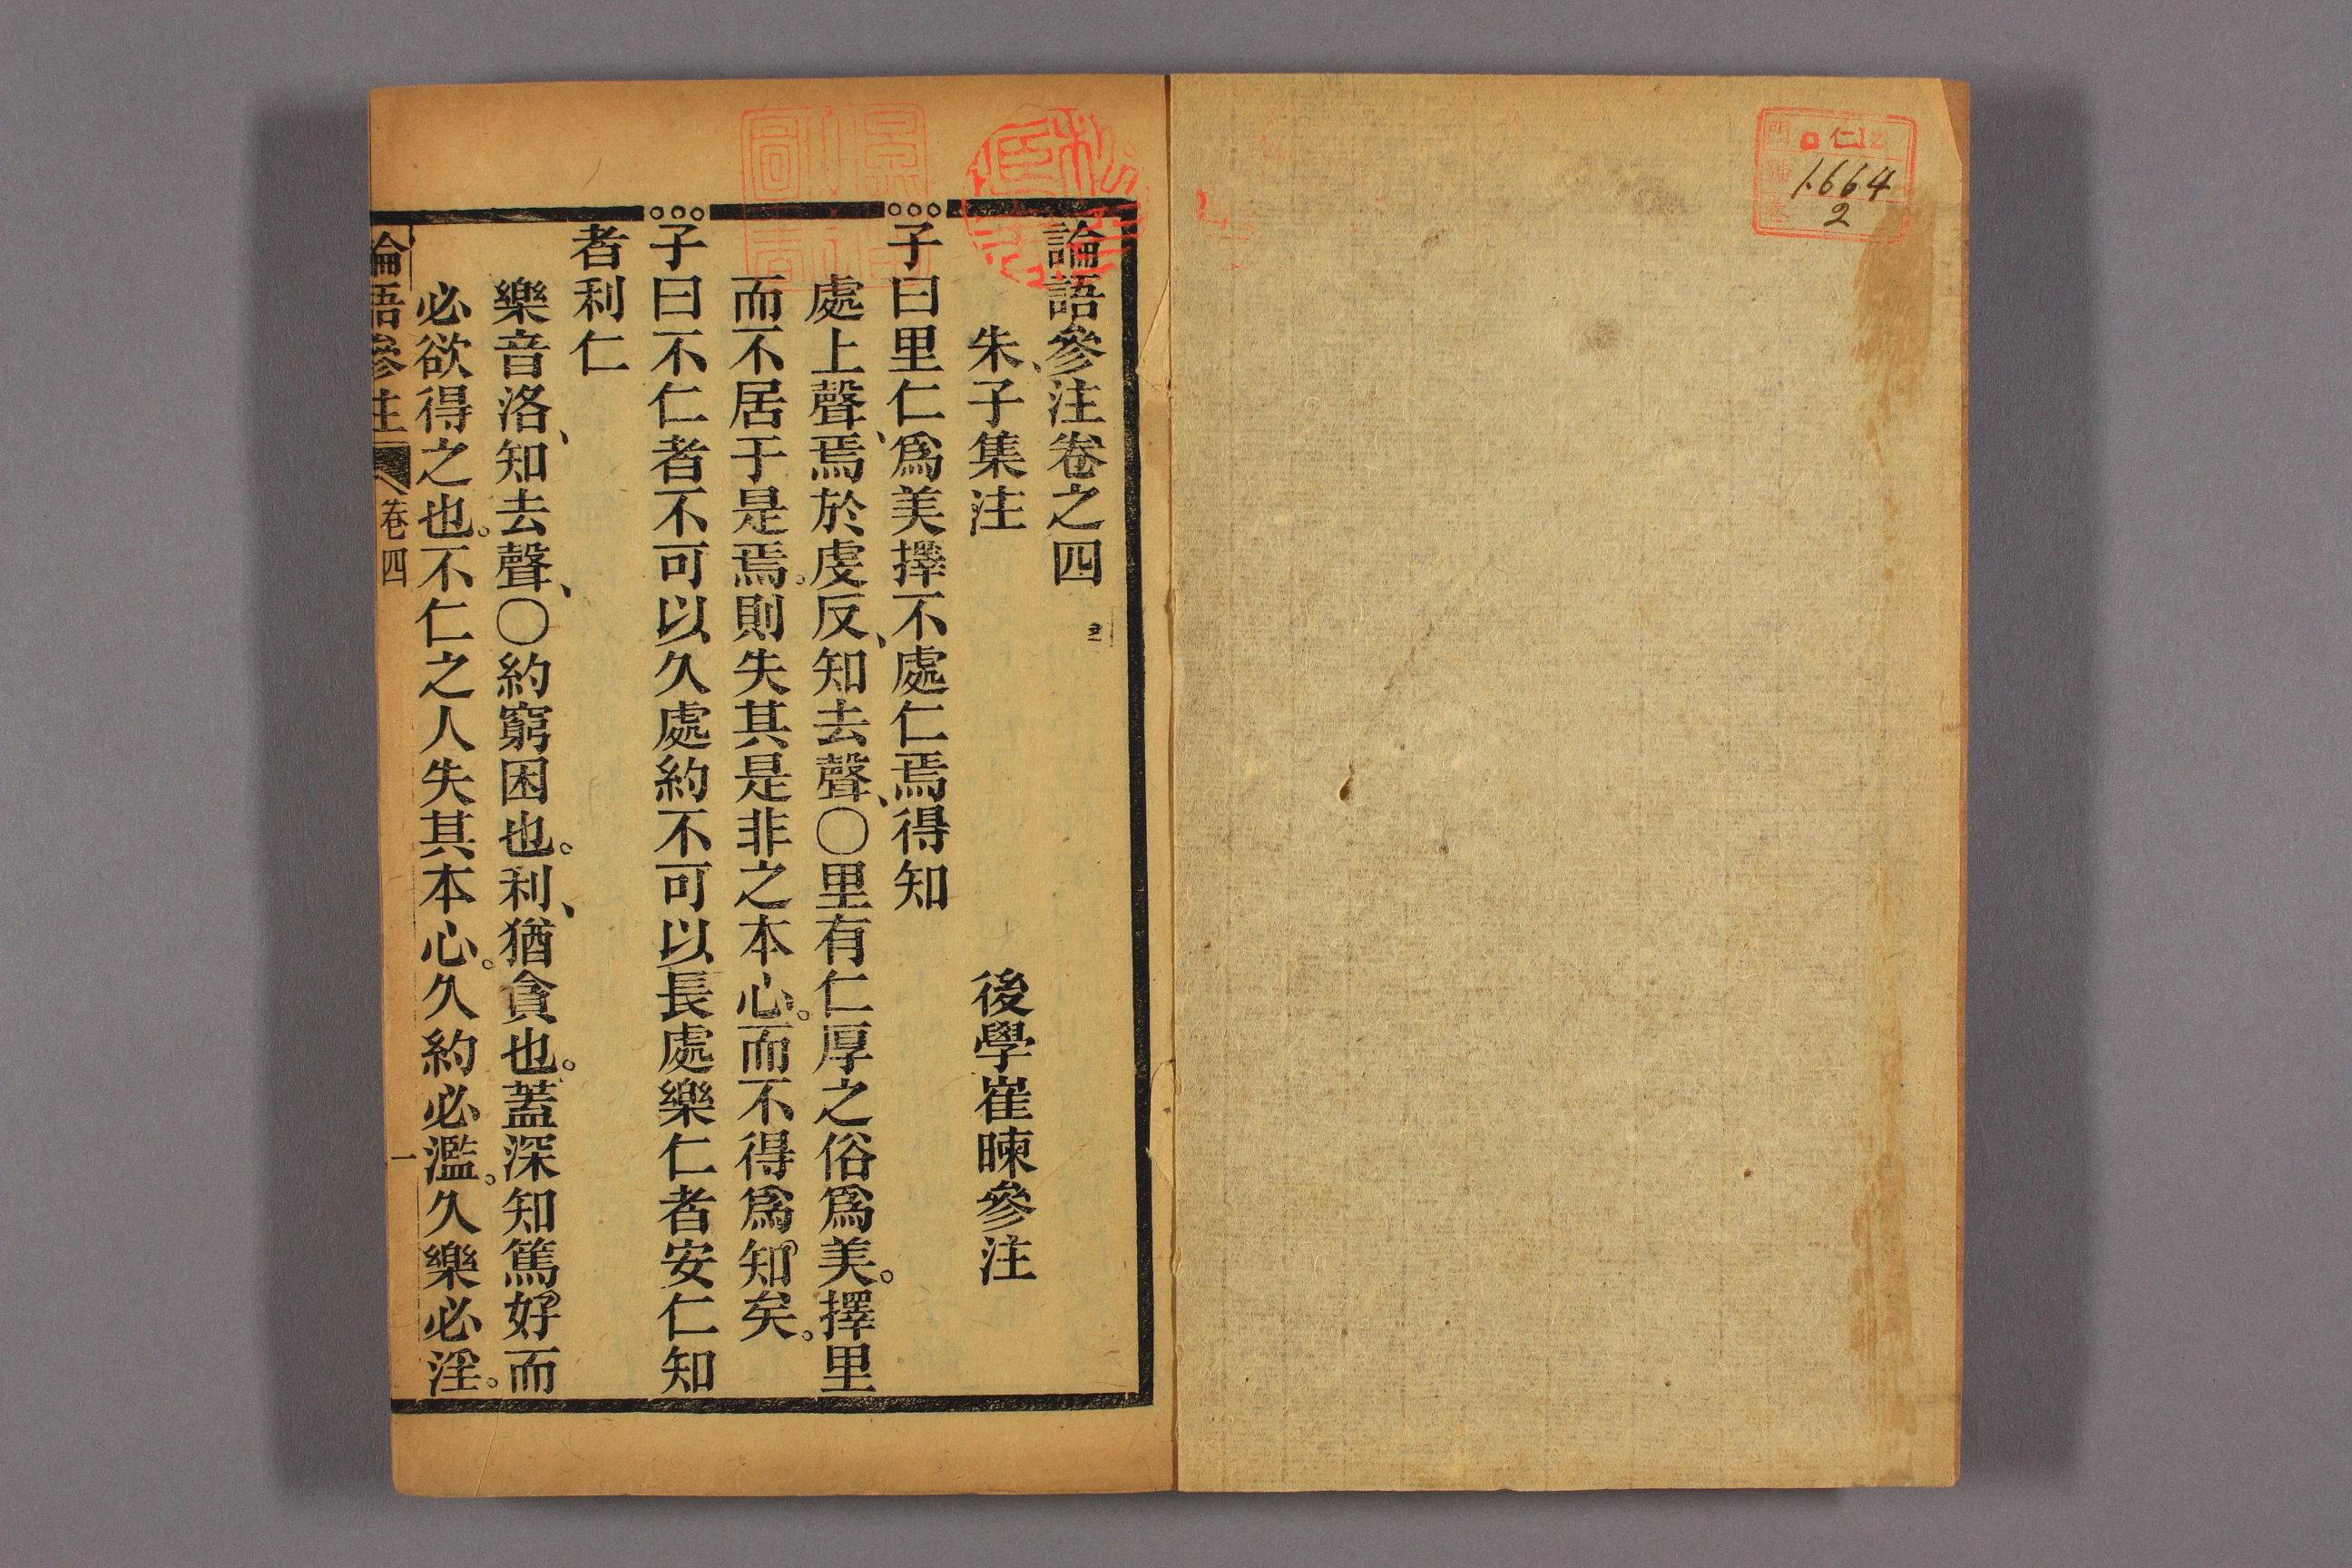 仁12
1664
2
論語參注卷之四
朱子集注　後學崔暕參注
子曰里仁爲美擇不處仁焉得知
處上聲、焉於虔反、知去聲、○里有仁厚之俗爲美。擇里
而不居于是焉。則失其是非之本心。而不得爲知矣。
子曰不仁者不可以久處約不可以長處樂仁者安仁知
者利仁
樂音洛、知去聲、○約窮困也。利、猶貪也。蓋深知篤好而
必欲得之也。不仁之人失其本心。久約必濫。久樂必淫。
論語參注　卷四　一